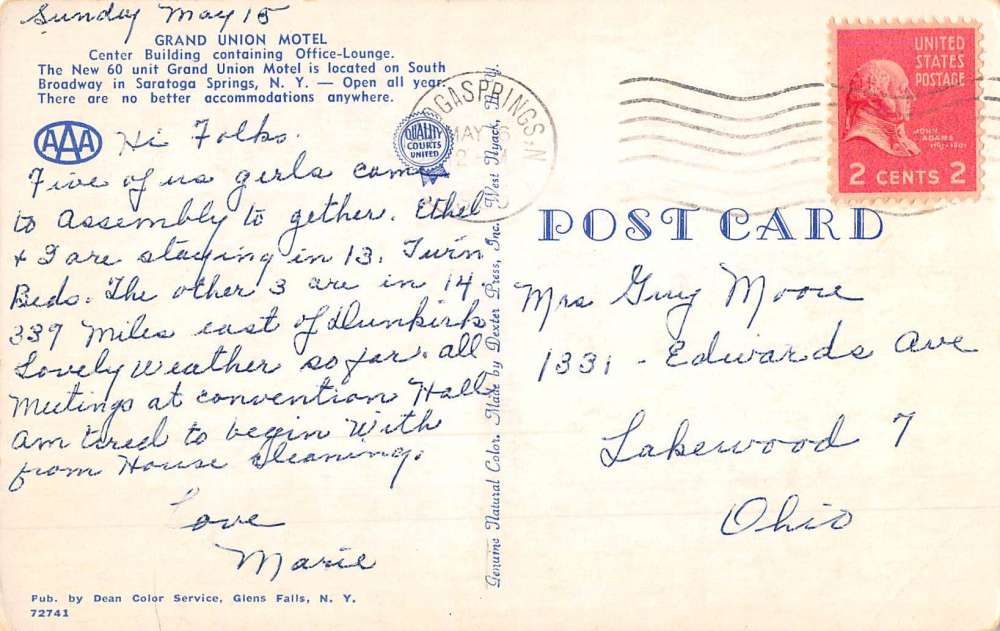 Sunday May 15
GRAND UNION MOTEL
Center Building containing Office-Lounge.
The New 60 unit Grand Union Motel is located on South
Broadway in Saratoga Springs, N. Y. — Open all year.
There are no better accommodations anywhere.
AAA
QUALITY
COURTS
UNITED
Hi Folks.
Five of us girls came
to Assembly to gether. Ethel
+ I are staying in 13. Twin
Beds. The other 3 are in 14
339 Miles east of Dunkirk
Lovely Weather so far. all
Meetings at convention Hall
am tired to begin With
from House Cleaning.
Love
Marie
Pub. by Dean Color Service, Glens Falls, N. Y.
72741
Genuine Natural Color. Made by Dexter Press, Inc. West Nyack, N. Y.
GASPRINGS, N
MAY 16
UNITED
STATES
POSTAGE
JOHN
ADAMS
2 CENTS 2
POST CARD
Mrs Guy Moore
1331 - Edwards Ave
Lakewood 7
Ohio